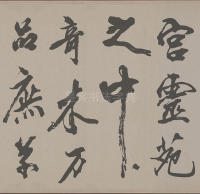 宫靈苑
之中
奇木万
品庶草